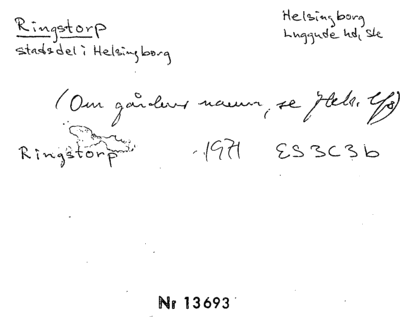 Ringstorp
stadsdel i Helsingborg
Helsingborg
Luggude hd, Sk
(Om gårdens namn, se Hels. lfs)
Ringstorp 1971 ES3C3b
Nr 13693